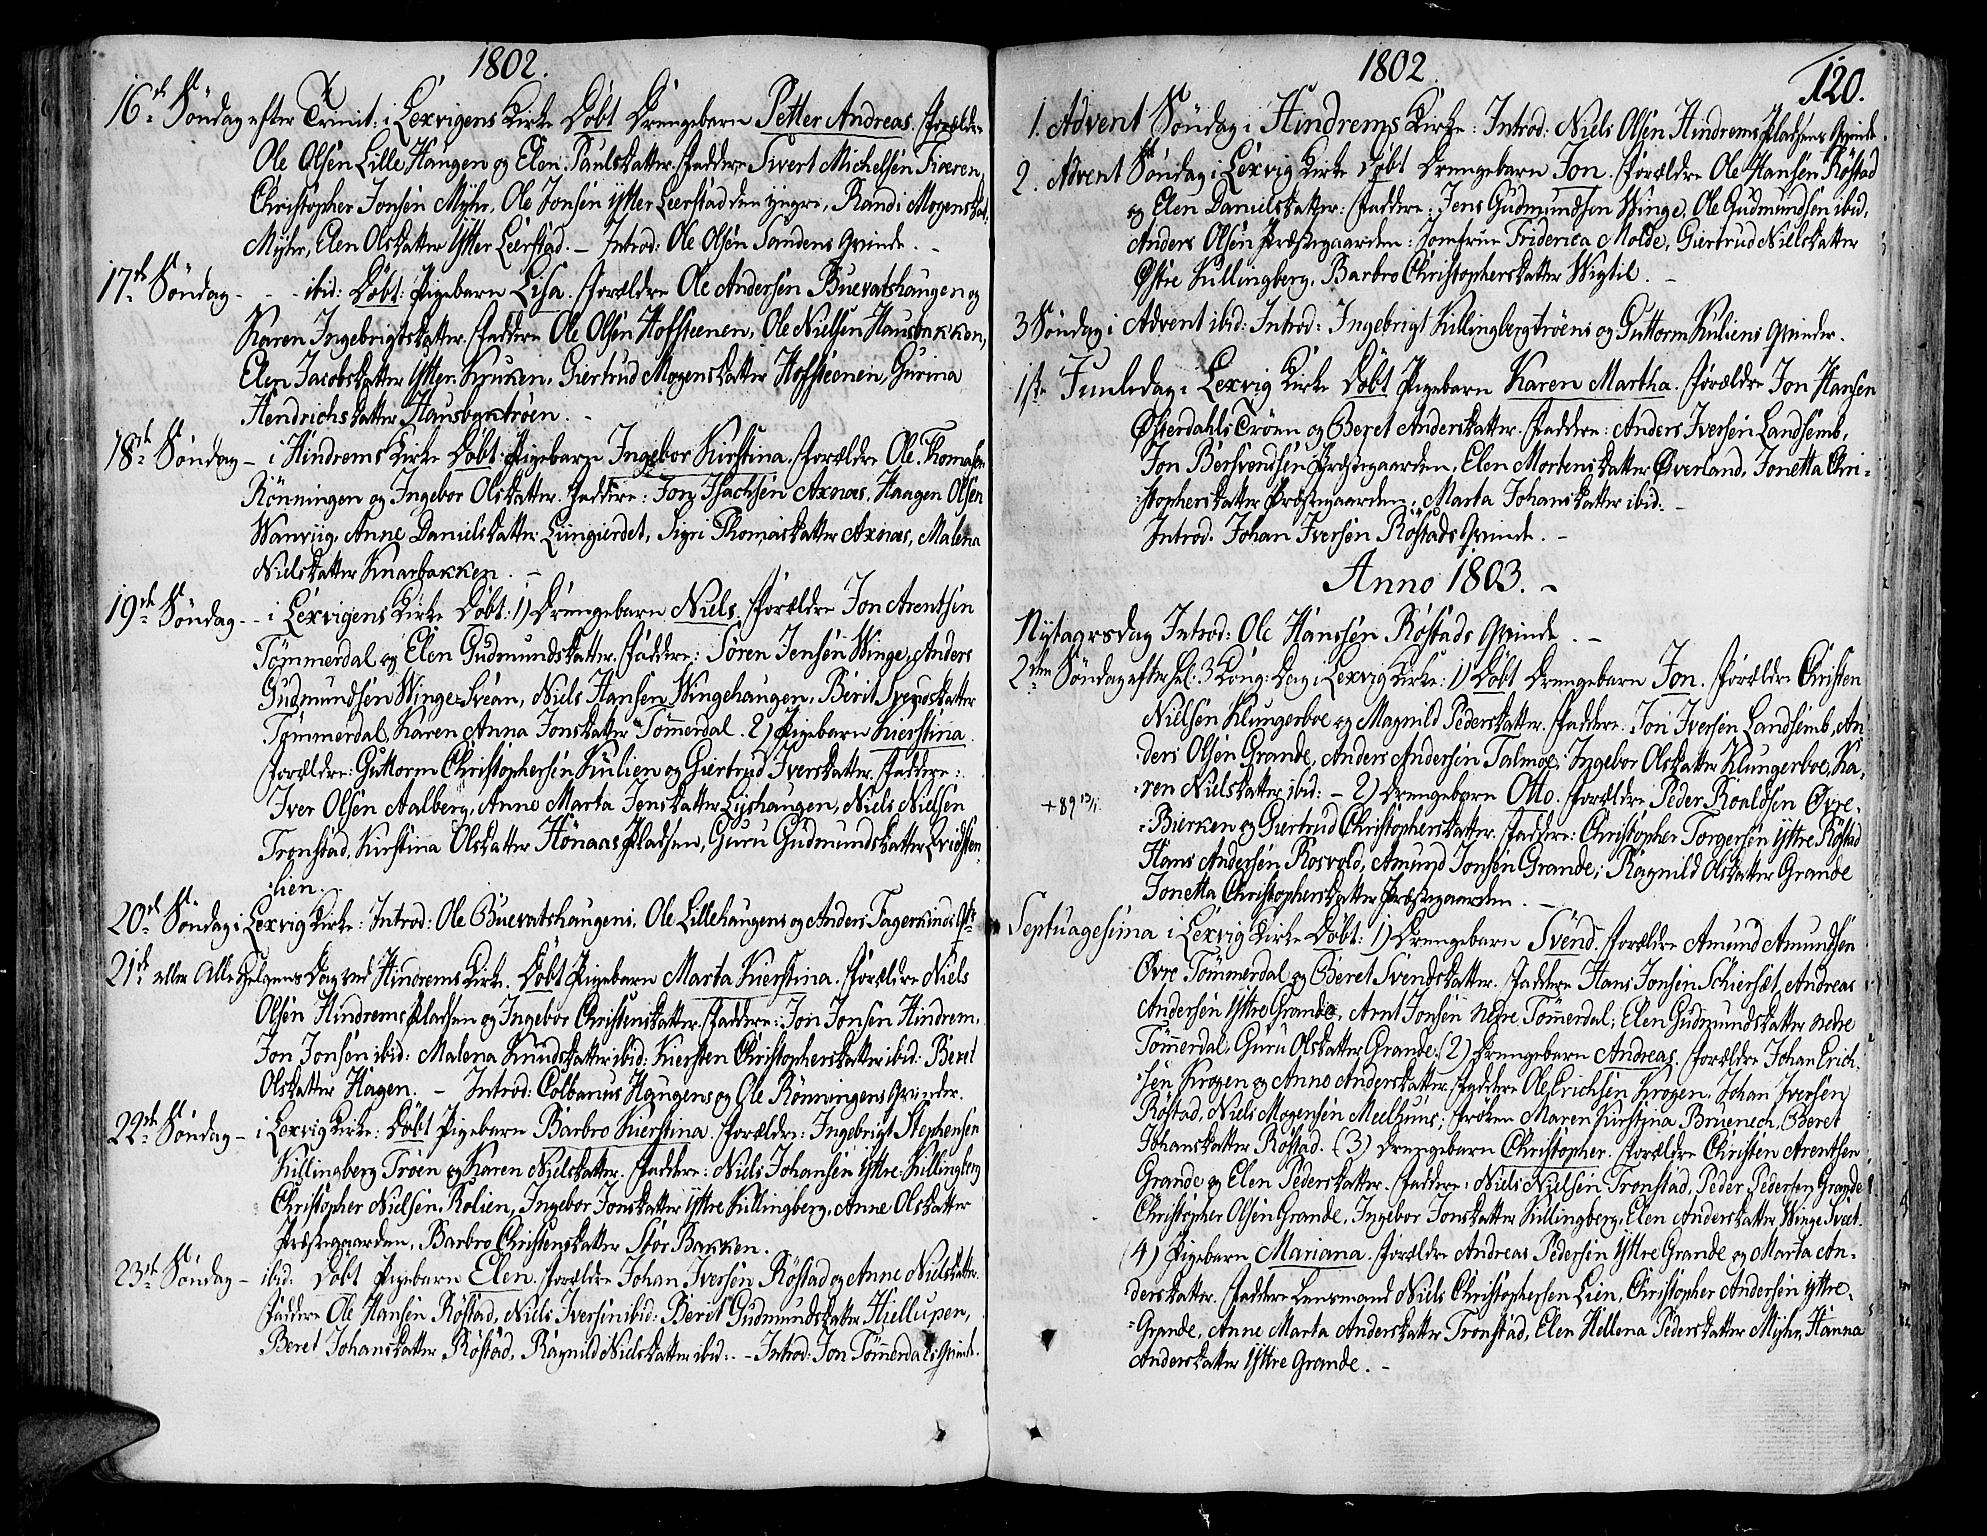 1802.
16de Søndag efter Trinit: i Lexvigens Kirke Døbt Drengebarn Petter Andreas. Forældre
Ole Olsen Lille Haugen og Elen Paulskatter. Faddere: Sivert Michelsen
Christopher Jonsen Myhr, Ole Jonsen Ytter Leerstad den yngre, Randi Mogenskat:
Myhr, Elen Olskatter Ytter Leerstad. – Introd: Ole Olsen Sandens Qvinde. –
17de Søndag – – ibid: Døbt: Pigebarn Lisa. Forældre Ole Andersen Buevatshaugen og
Karen Ingebrigtskatter. Faddere Ole Olsen Hofsteenen, Ole Nielsen Hausbakken,
Elen Jacobskatter Ytter Kruken, Giertrud Mogenskatter Hofsteenen, Gurina
Hendrichskatter Hausbyktrøen. –
18de Søndag – i Hindrems Kirke Døbt: Pigebarn Ingebor Kirstina. Forældre Ole Thomasen
Rönningen og Ingebor Olskatter. Faddere: Jon Isachsen Axnæs, Haagen Olsen
Wanviig, Anne Danielskatter Liungierdet, Sigri Thomaskatter Axnæs, Malena
Nielskatter Knarbakken. –
19de Søndag – i Lexvigens Kirke Døbt: 1) Drengebarn Niels. Forældre Jon Arentsen
Tömmerdal og Elen Gudmundskatter. Faddere: Sören Jensen Winge, Anders
Gudmundsen Winge-Svean, Niels Hansen Wingehaugen, Berit Svendskatter
Tömmerdal, Karen Anna Jonskatter Tömerdal. 2) Pigebarn Kierstina.
Forældre: Guttorm Christophersen Kulien og Giertrud Iverskatter. Faddere:
Iver Olsen Aalberg, Anne Marta Jenskatter Lyshaugen, Niels Nielsen
Tronstad, Kirstina Olskatter Hönaas Pladsen, Guru Gudmundskatter Qvidsten
lien.
20de Søndag i Lexvig Kirke: Introd: Ole Buevatshaugens, Ole Lillehaugens og Anders
21de eller Alle Helgens Dag ved Hindrems Kirke. Døbt Pigebarn Marta Kierstina. Forældre Niels
Olsen Hindrems Pladsen og Ingebor Christenskatter. Faddere: Jon Jonsen Hindrem,
Jon Jonsen ibid: Malena Knudskatter ibid: Kiersten Christopherskatter ibid: Beret
Olskatter Hagen. – Introd: Colbanus Haugens og Ole Rönningens Qvinder.
22de Søndag – i Lexvig Kirke: Døbt Pigebarn Barbro Kierstina. Forældre: Ingebrigt Stephensen
Killingberg Trøen og Karen Nielskatter. Faddere: Niels Johansen Yttre Killingberg
Christopher Nielsen Rolien, Ingebor Jonskatter Yttre Killingberg, Anne Olskatter
Præstegaarden, Barbro Christenskatter Stor Bakken.
23de Søndag – ibid: Døbt Pigebarn Elen. Forældre Johan Iversen Røstad og Anne Nielskatter.
Faddere Ole Hansen Røstad, Niels Iversen ibid: Beret Gudmundskatter Hiellupen,
Beret Johanskatter Røstad, Ragnild Nielskatter ibid: – Introd: Jon Tömerdals Qvinde.
1802.
120.
1. Advent Søndag i Hindrems Kirke: Introd: Niels Olsen Hindrems Pladsens Qvinde.
2. Advent Søndag i Lexvig Kirke Døbt Drengebarn Jon. Forældre Ole Hansen Røstad
og Elen Danielskatter: Faddere: Jens Gudmundsen Winge, Ole Gudmundsen ibid,
Anders Olsen Præstegaarden: Jomfrue Friderica Molde, Giertrud Nielskatter
Østre Killingberg, Barbro Christopherskatter Wigtil. –
3 Søndag i Advent ibid: Introd: Ingebrigt Killingbergtrøens og Guttorm Kuliens Qvinder.
1ste Juuledag i Lexvig Kirke Døbt Pigebarn Karen Martha. Forældre Jon Hansen
Østerdahls Trøen og Beret Anderskatter. Faddere: Anders Iversen Landsemb,
Jon Bersvendsen Præstegaarden, Elen Mortenskatter Øverland, Jonetta Chri-
stopherskatter Præstegaarden, Marta Johanskatter ibid. –
Introd. Johan Iversen Röstads Qvinde. –
Anno 1803. –
Nytaarsdag Introd: Ole Hanssen Röstads Qvinde. –
2den Søndag efter hel: 3 Kong: Dag i Lexvig Kirke: 1) Døbt Drengebarn Jon. Forældre Christen
Nielsen Klungerboe og Magnild Pederskatter. Faddere: Jon Iversen Landsemb, An
ders Olsen Grande, Anders Andersen Talmoe, Ingebor Olskatter Klungerboe, Ka-
ren Nielskatter ibid: – 2) Drengebarn Otto. Forældre Peder Roaldsen Øvre
+89 13/1.
Bierken og Giertrud Christopherskatter. Faddere: Christopher Torgersen Yttre Röstad
Hans Andersen Rosvold, Amund Jonsen Grande, Ragnild Olskatter Grande
Jonetta Christopherskatter Præstegaarden. –
Septuagesima i Lexvig Kirke Døbt: 1) Drengebarn Svend. Forældre Amund Amundsen
Øvre Tömmerdal og Beret Svendskatter. Faddere Hans Jonsen Schierset, Andreas
Andersen Yttre Grande, Arnt Jonsen nedre Tömerdal, Elen Gudmundskatter nedre
Tömerdal, Guru Olskatter Grande. (2) Drengebarn Andreas. Forældre Johan Erich-
sen Krogen og Anne Anderskatter. Faddere Ole Erichsen Krogen, Johan Iversen
Röstad, Niels Mogensen Meelhuus, Frøken Maren Kirstina Bruenech, Beret
Johanskatter Röstad. (3) Drengebarn Christopher. Forældre Christen Arentsen
Grande og Elen Pederskatter. Faddere: Niels Nielsen Tronstad, Peder Pedersen Grande
Christopher Olsen Grande, Ingebor Jonskatter Killingberg, Elen Anderskatter Winge Sveet.
(4) Pigebarn Mariana. Forældre Andreas Pedersen Yttre Grande og Marta An-
derskatter. Faddere Lensmand Niels Christophersen Lien, Christopher Andersen Yttre-
Grande, Anne Marta Anderskatter Tronstad, Elen Hellena Pederskatter Myhr, Hanna
Anderskatter Yttre Grande. –